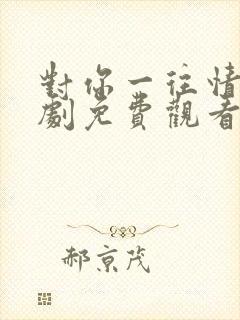 對你一往情
劇免費觀看
郝京茂